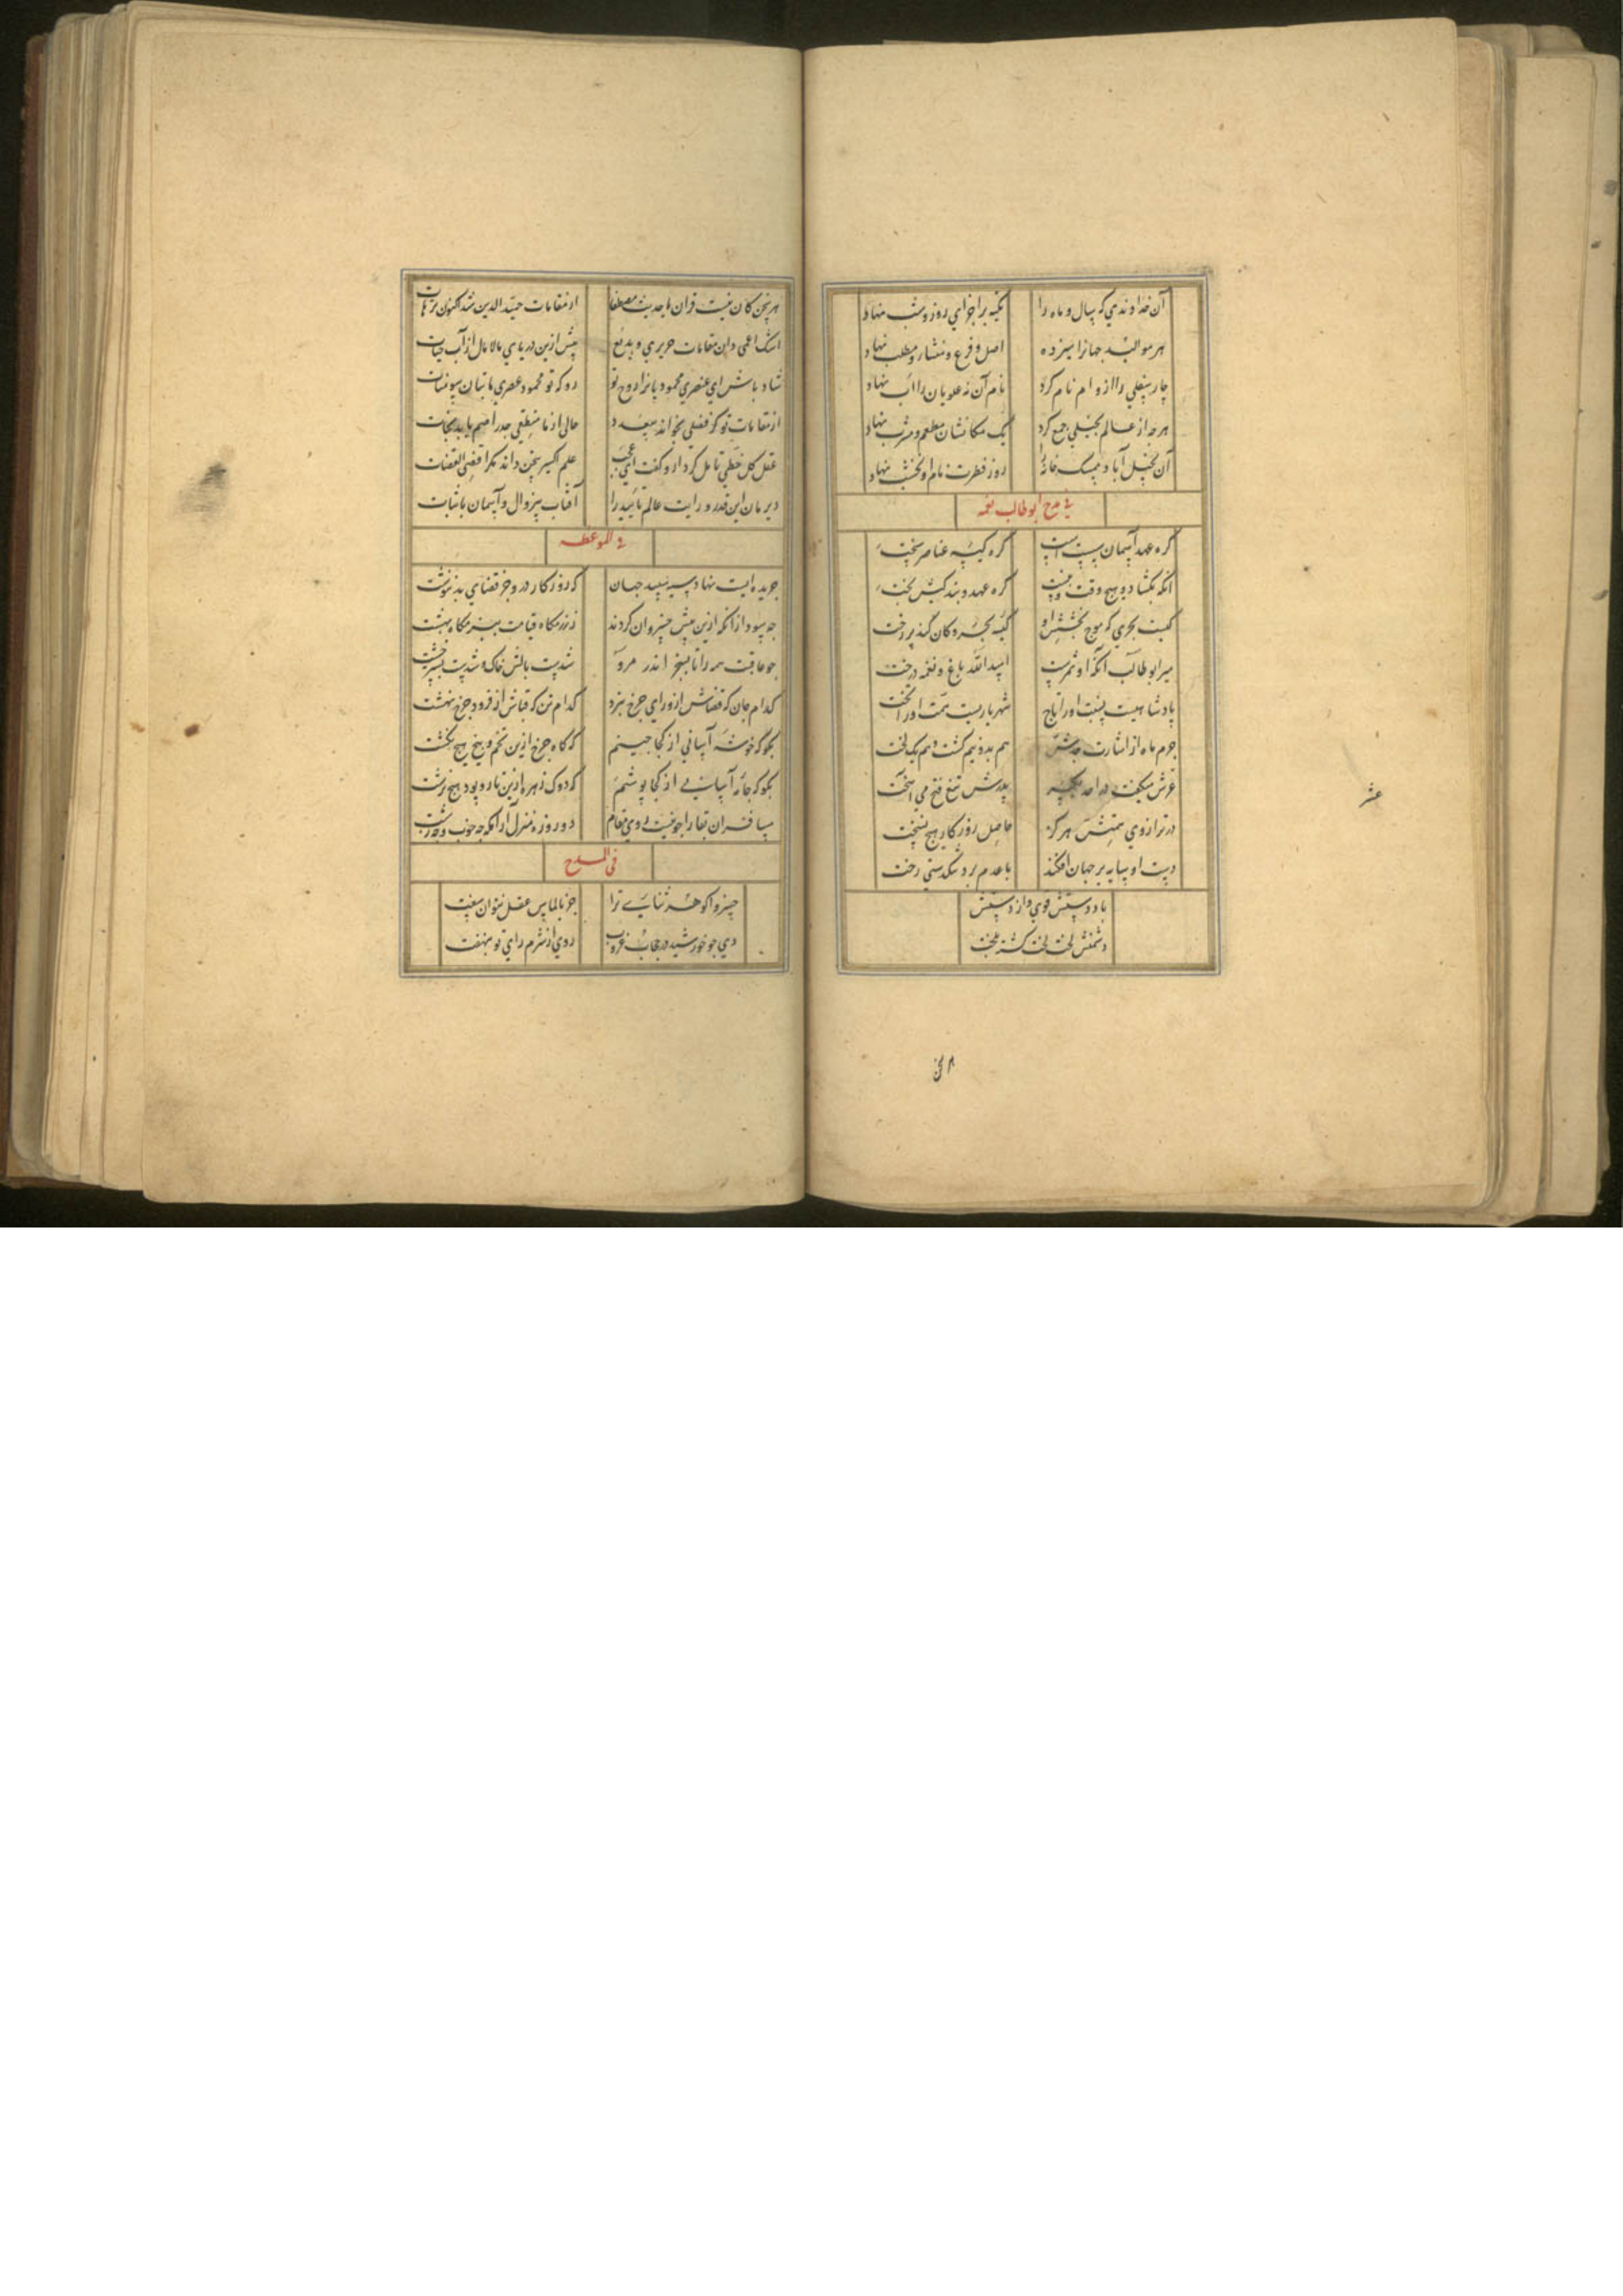 آن خداوندي که سال و ماه را تکیه بر اجزاي روز و شب نهاد
هر موالید جهانرا سیزده اصل و فرع و منشار و مطلب نهاد
چار سفلي را ازو ام نام کرد نام آن نه علویان را اب نهاد
هرچه از عالم بخیلي جمع کرد یک مکانشان مطعم و مشرب نهاد
روز فطرت نام او نخشب نهاد
في مدح ابوطالب نعمه
گره عهد آسمان سست است گره کیسه عناصر سخت
آنکه بگشاد و هیچ وقت نبست گره عهد و بند کیس بخت
کیست بحري که موج بخشش او کیسه بحر و کان کند پردخت
میر ابو طالب آنکه او ثمرست اسد الله باغ و نعمه درخت
پادشاهیست نسبت او را تاج شهریاریست همت او را تخت
جرم ماه از اشارت جدش هم بدو نیم گشت و هم یک لخت
غرش میکفت پدرش تیغ فتح مي آهخت
در ترازوي همتش هرگز حاصل روزگار هیچ نسخت
دست او سایه بر جهان افکند با عدم برد تنگدستي رخت
باد دستش قوي و از دستش
دشمنش لخت لخت گشته بلخت
عشر
هر سخن کان نیست قران یا حدیث مصطفا از مقامات حمید الدین شد اکنون ترهات
اشک اعمی دان مقامات حریري و بدیع پیش ازین دریاي مالامال از آب حیات
شاد باش اي عنصري محمودیانرا روح تو رو که تو محمود عصري ما بتان سومنات
از مقامات تو گر فصلي بخوانند بر عدد حالی از نامنطقي جذر اصم یابد نجات
عقل کل خطي تامل کرد ازو گفت اي عجب علم اکسیر سخن داند مگر اقضی القضات
دیر مان اي قدر و رایت عالم تایید را آفتاب بیزوال و آسمان با ثبات
في الموعظه
جریده ایست نهاد سیه سپید جهان که روزگار درو جز قضاي بد ننوشت
چو سود از آنکه ازین پیش خسروان کردند ز رزمگاه قیامت ببزمگاه بهشت
چو عاقبت همه را تا بسنجر اندر مرو شدست بالش خاک و شدست بستر خشت
کدام جان که قضاش از وراي چرخ نبرد کدام تن که قباش از فرود چرخ نهشت
بگو که خوشه آسانی از کجا چینم که گاه چرخ ازین تخم و بیخ هیچ نکشت
بگو که جامه آسانی از کجا پوشم که دوک زهره ازین تار و پود هیچ نرشت
مسافران بقا را چو نیست روي مقام دو روزه منزل آرامگه چه خوب و چه زشت
فی المدح
خسروا گوهر ثناے ترا جز بالماس عقل نتوان سفت
دي چو خورشید در حجاب غروب روي از شرم راي تو بنهفت